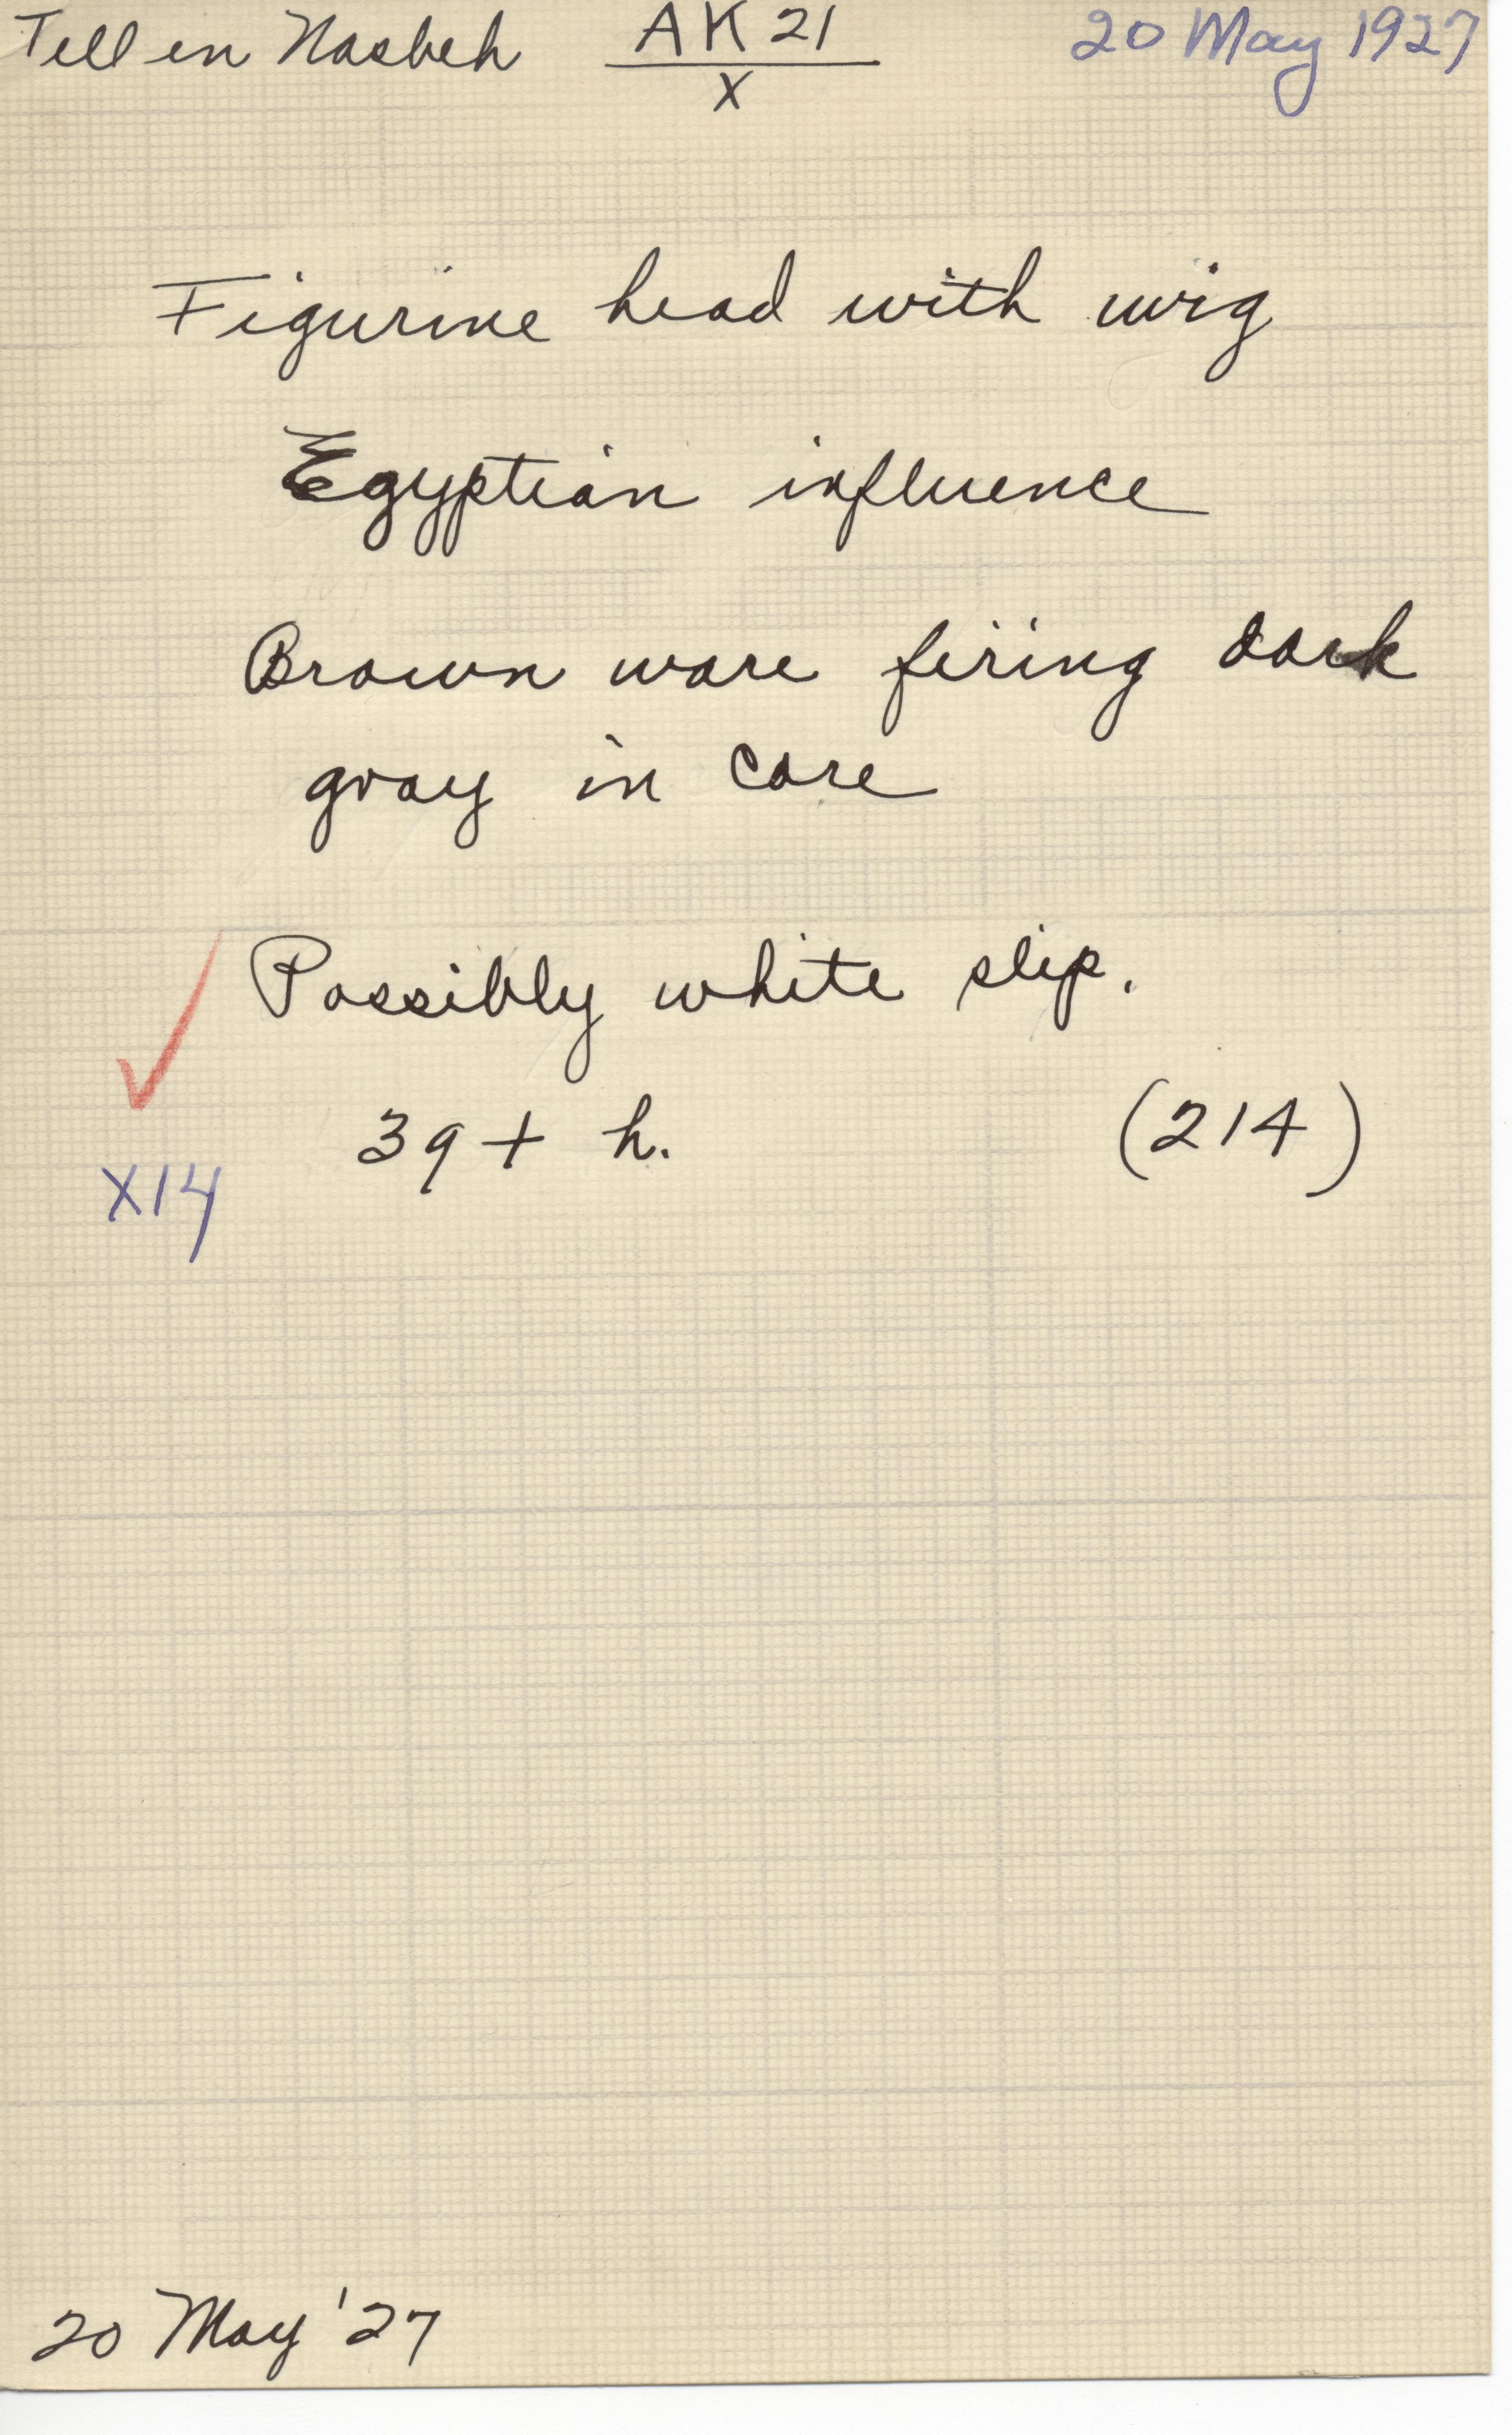 Tell en Nasbeh AK 21 20 May 1927
X
Figurine head with wig
Egyptian influence
Brown ware firing dark
gray in core
Possibly white slip.
39 + h. (214)
X14
20 May '27